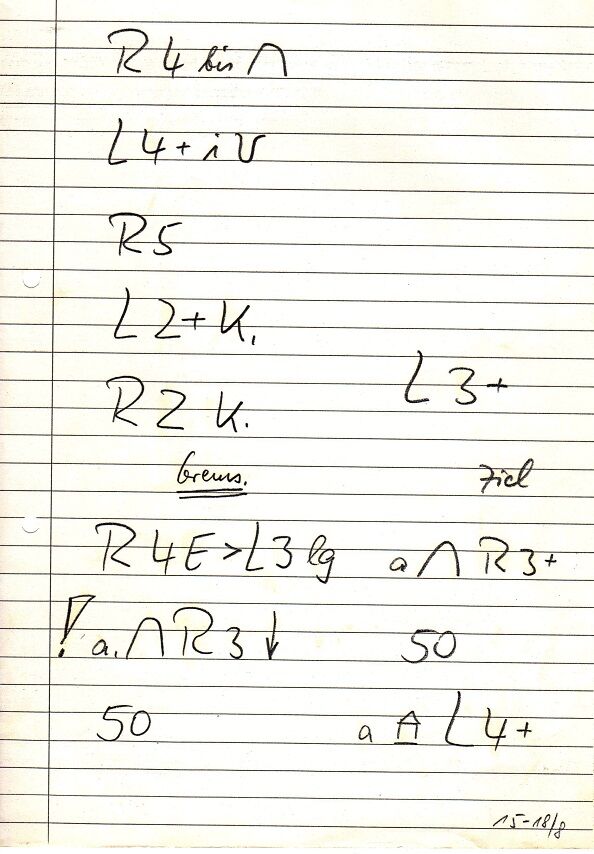 R 4 bis ∩
L 4 + i V
R 5
L 2 + K.
R 2 K.
L 3 +
brems.
Ziel
R 4 E > L 3 lg
a ∩ R 3 +
! a. ∩ R 3 ↓
50
50
a L 4 +
15-18/8